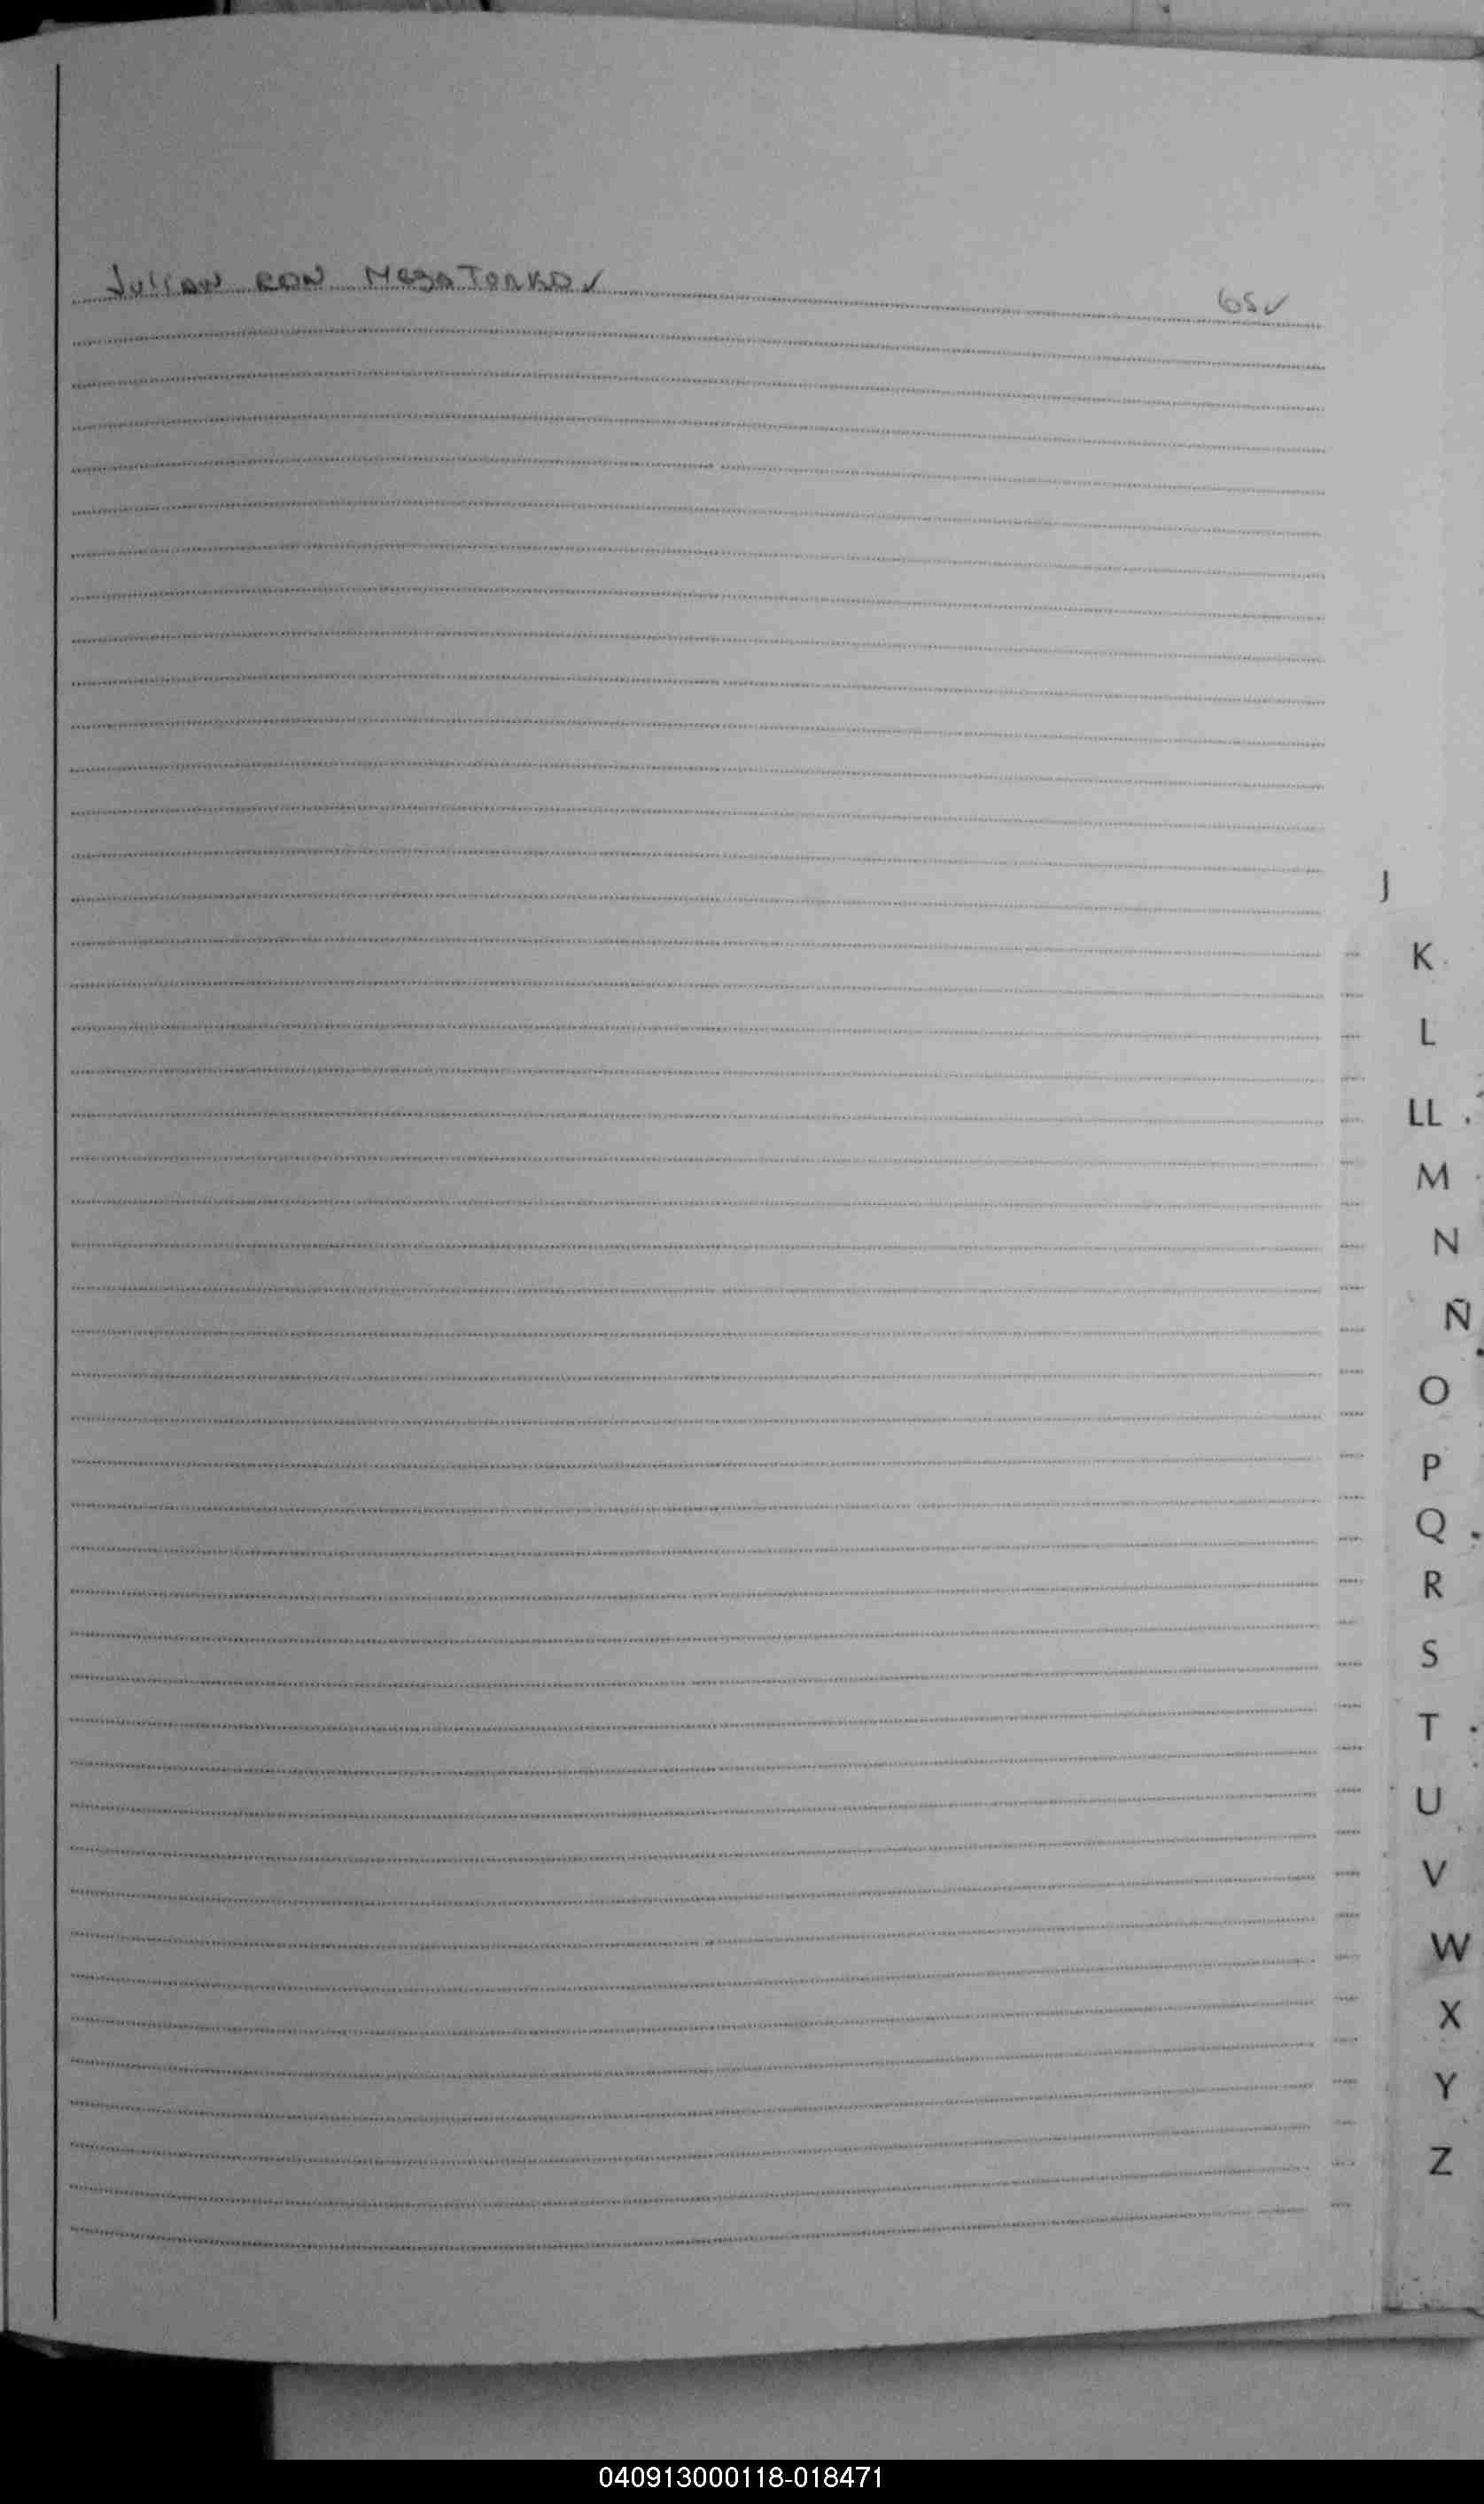 Julian RON 65 ✓
J
K
L
LL
M
N
Ñ
O
P
Q
R
S
T
U
V
W
X
Y
Z
040913000118-018471